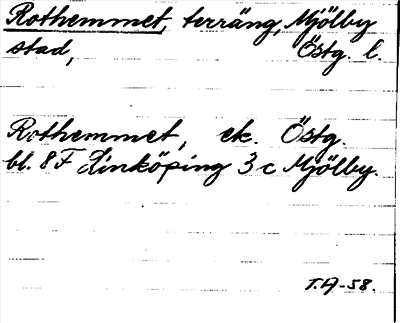 Rothemmet, terräng, Mjölby
stad, Östg. l.
Rothemmet, ek. Östg.
bl. 8 F Linköping 3 c Mjölby.
T.A-58.